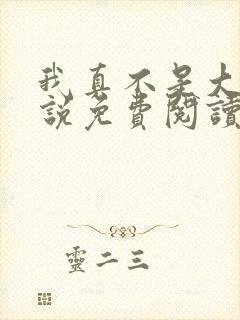 我真不是大
說免費閱讀
靈二三